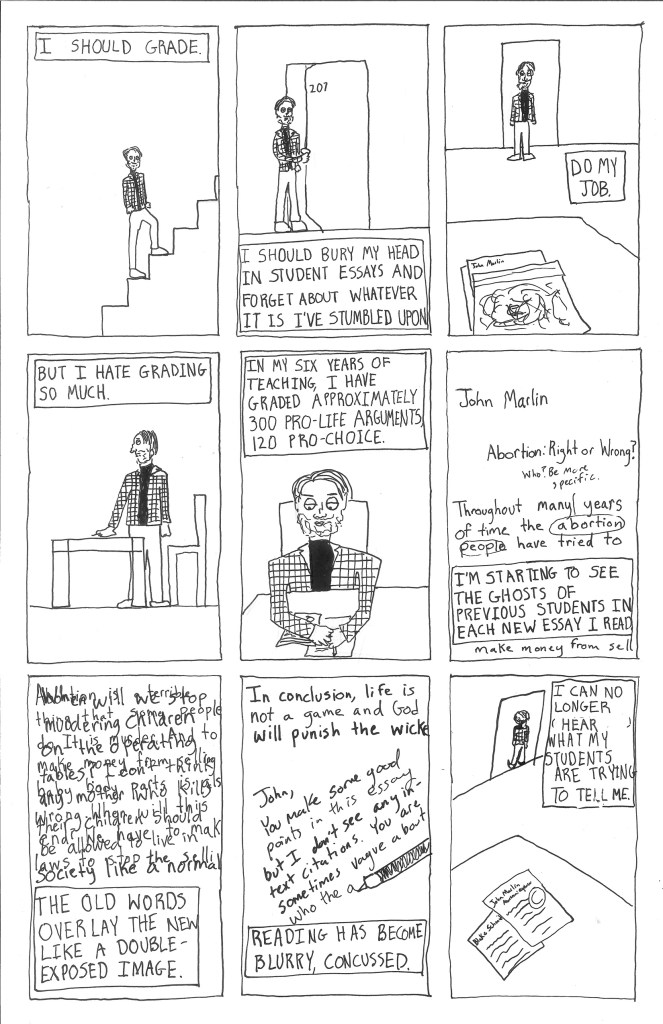 I SHOULD GRADE.
207
I SHOULD BURY MY HEAD
IN STUDENT ESSAYS AND
FORGET ABOUT WHATEVER
IT IS I'VE STUMBLED UPON
DO MY
JOB.
John Marlin
BUT I HATE GRADING
SO MUCH.
IN MY SIX YEARS OF
TEACHING, I HAVE
GRADED APPROXIMATELY
300 PRO-LIFE ARGUMENTS,
120 PRO-CHOICE.
John Marlin
Abortion: Right or Wrong?
Who? Be more
specific.
Throughout many years
of time the abortion
people have tried to
I'M STARTING TO SEE
THE GHOSTS OF
PREVIOUS STUDENTS IN
EACH NEW ESSAY I READ
make money from sell
murdering children
on the operating
tables? I don't think
any mother who kills
their children should
be allowed to live in
society like a normal
THE OLD WORDS
OVERLAY THE NEW
LIKE A DOUBLE-
EXPOSED IMAGE.
In conclusion, life is
not a game and God
will punish the wicke
John,
You make some good
points in this essay
but I don't see any in-
text citations. You are
sometimes vague about
who the a
READING HAS BECOME
BLURRY, CONCUSSED.
I CAN NO
LONGER
HEAR
WHAT MY
STUDENTS
ARE TRYING
TO TELL ME.
John Marlin